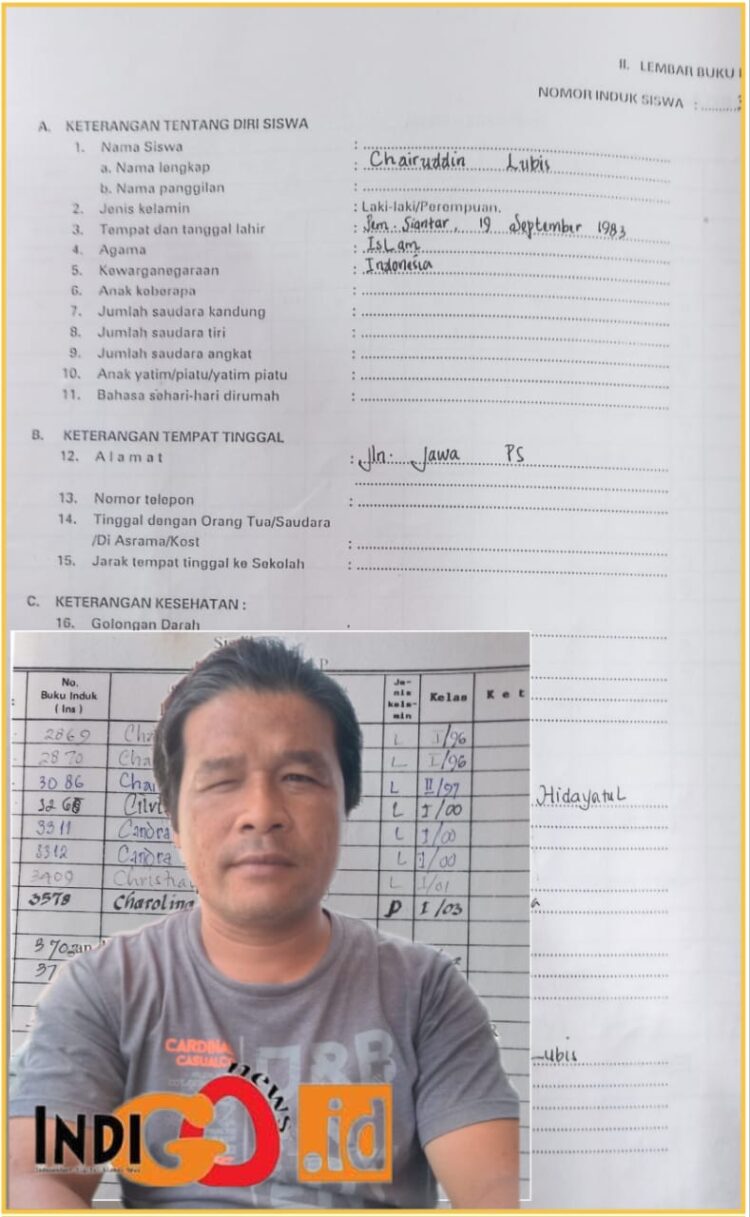 II. LEMBAR BUKU I
NOMOR INDUK SISWA : 
A. KETERANGAN TENTANG DIRI SISWA
1. Nama Siswa :
a. Nama lengkap : Chairuddin Lubis
b. Nama panggilan :
2. Jenis kelamin : Laki-laki/Perempuan.
3. Tempat dan tanggal lahir : Pem. Siantar, 19 September 1983
4. Agama : Islam
5. Kewarganegaraan : Indonesia
6. Anak keberapa :
7. Jumlah saudara kandung :
8. Jumlah saudara tiri :
9. Jumlah saudara angkat :
10. Anak yatim/piatu/yatim piatu :
11. Bahasa sehari-hari dirumah :
B. KETERANGAN TEMPAT TINGGAL
12. Alamat : Jln. Jawa PS
13. Nomor telepon :
14. Tinggal dengan Orang Tua/Saudara
/Di Asrama/Kost :
15. Jarak tempat tinggal ke Sekolah :
C. KETERANGAN KESEHATAN :
16. Golongan Darah
No. Buku Induk (Ins) Jenis kelamin Kelas Ket
2869 Cha L I/96
2870 Cha L I/96
3086 Chai L II/97
Hidayatul
L I/00
3311 Candra L I/00
3312 Candra L I/00
3409 Christia L I/01
3578 Charolina P I/03
Lubis
CARDINAL
CASUAL
INDIGO news .id